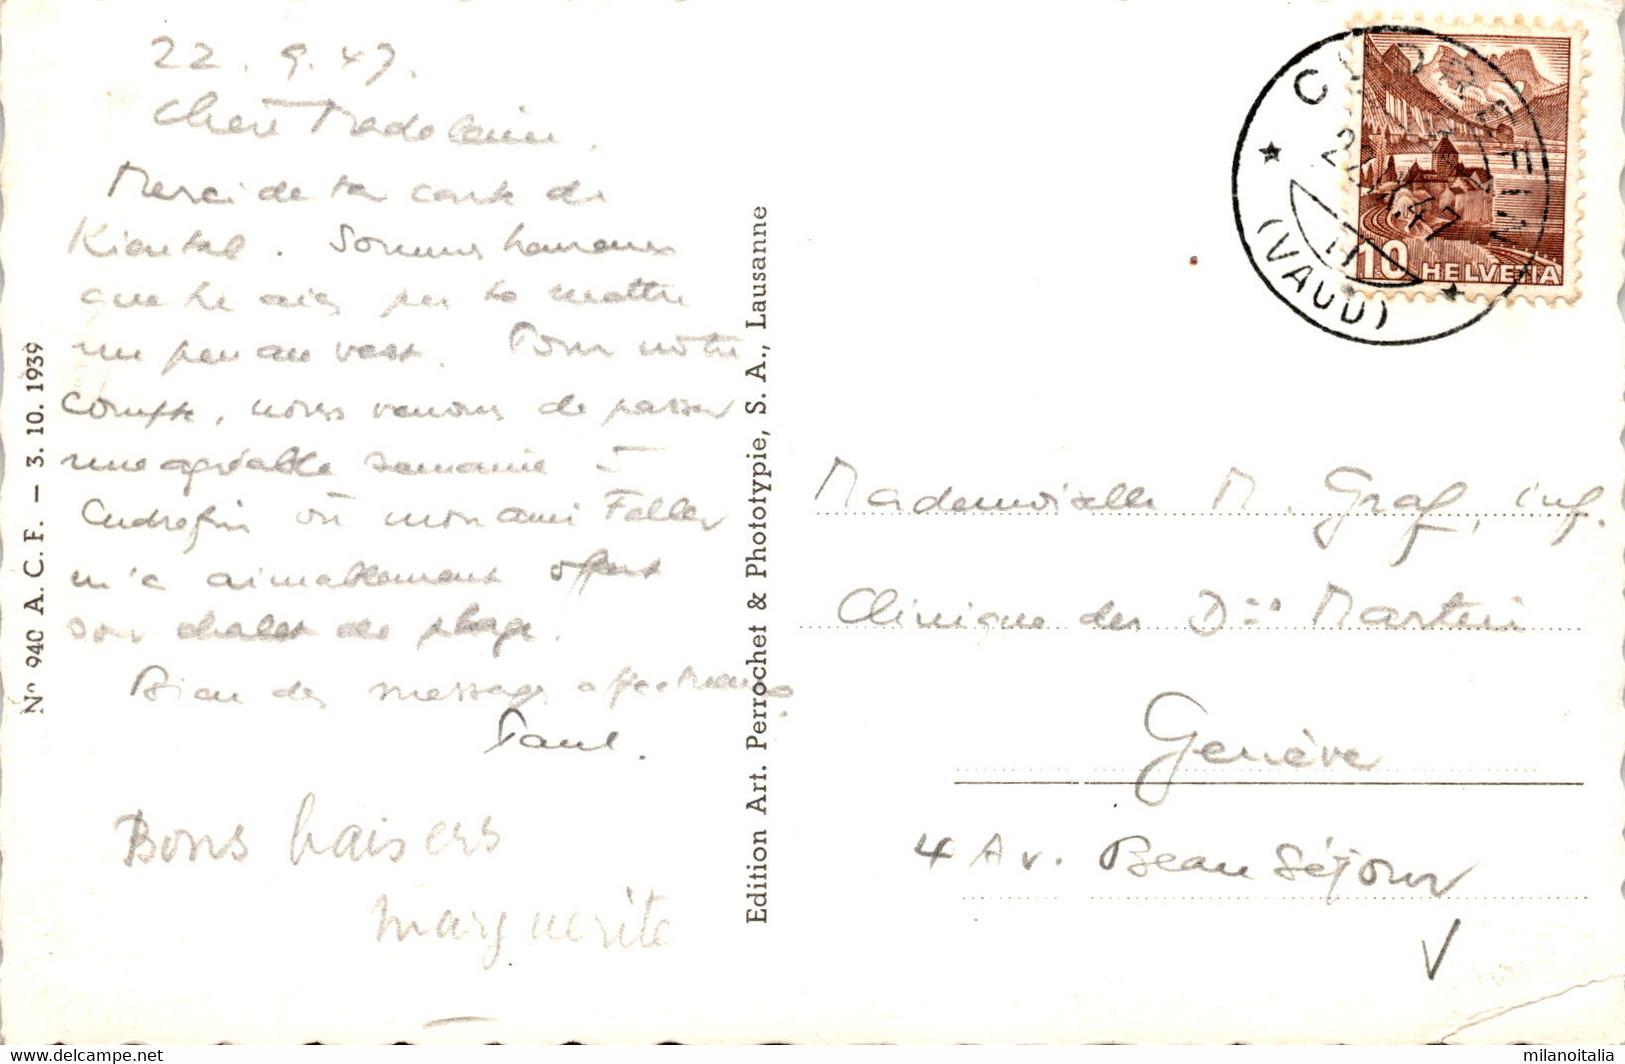 22.9.47.
Chère Madeleine.
Merci de ta carte de
Kiental. Sommes heureux
que tu aies pu te mettre
un peu au vert. Pour notre
compte, nous venons de passer
une agréable semaine à
Cudrefin où mon ami Feller
m'a aimablement offert
son chalet de plage.
Bien des messages affectueux
Paul.
Bons baisers
Marguerite
No 940 A. C. F. — 3. 10. 1939
Edition Art. Perrochet & Phototypie, S. A., Lausanne
CUDREFIN
22.IX.47
(VAUD)
10 HELVETIA
Mademoiselle M. Graf, inf.
Clinique des Drs Martin
Genève
4 Av. Beau Séjour
milanoitalia